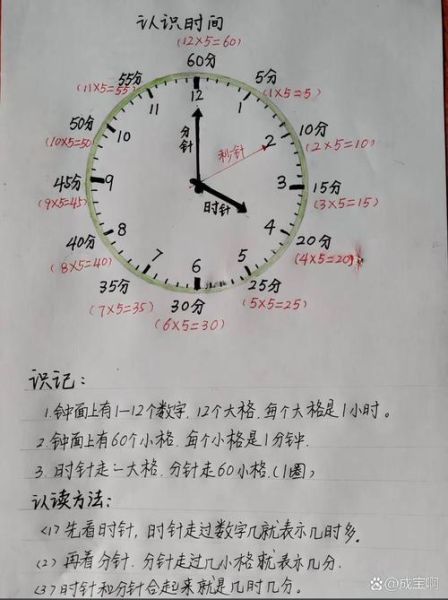 认识时间
(12×5=60)
60分
55分
(11×5=55)
5分
(1×5=5)
50分
(10×5=50)
10分
(2×5=10)
45分
(9×5=45)
15分
(3×5=15)
40分
(8×5=40)
20分
(4×5=20)
35分
(7×5=35)
25分
(5×5=25)
30分
(6×5=30)
12
11
1
10
2
9
3
8
4
7
5
6
分针
秒针
时针
识记：
1.钟面上有1—12个数字.12个大格.每个大格是1小时。
2.钟面上有60个小格.每个小格是1分钟.
3.时针走一大格.分针走60小格.(1圈)
认读方法：
<1>先看时针，时针走过数字几就表示几时多.
(2)再看分针.分针走过几小格就表示几分.
<3>时针和分针合起来就是几时几分。
@成宝啊